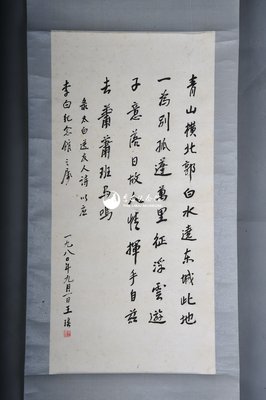 青山横北郭白水遶东城此地
一為别孤蓬萬里征浮雲遊
子意落日故人情揮手自兹
去蕭蕭班马鸣
录太白送友人诗以应
李白纪念馆之属
一九八〇年九月一日王